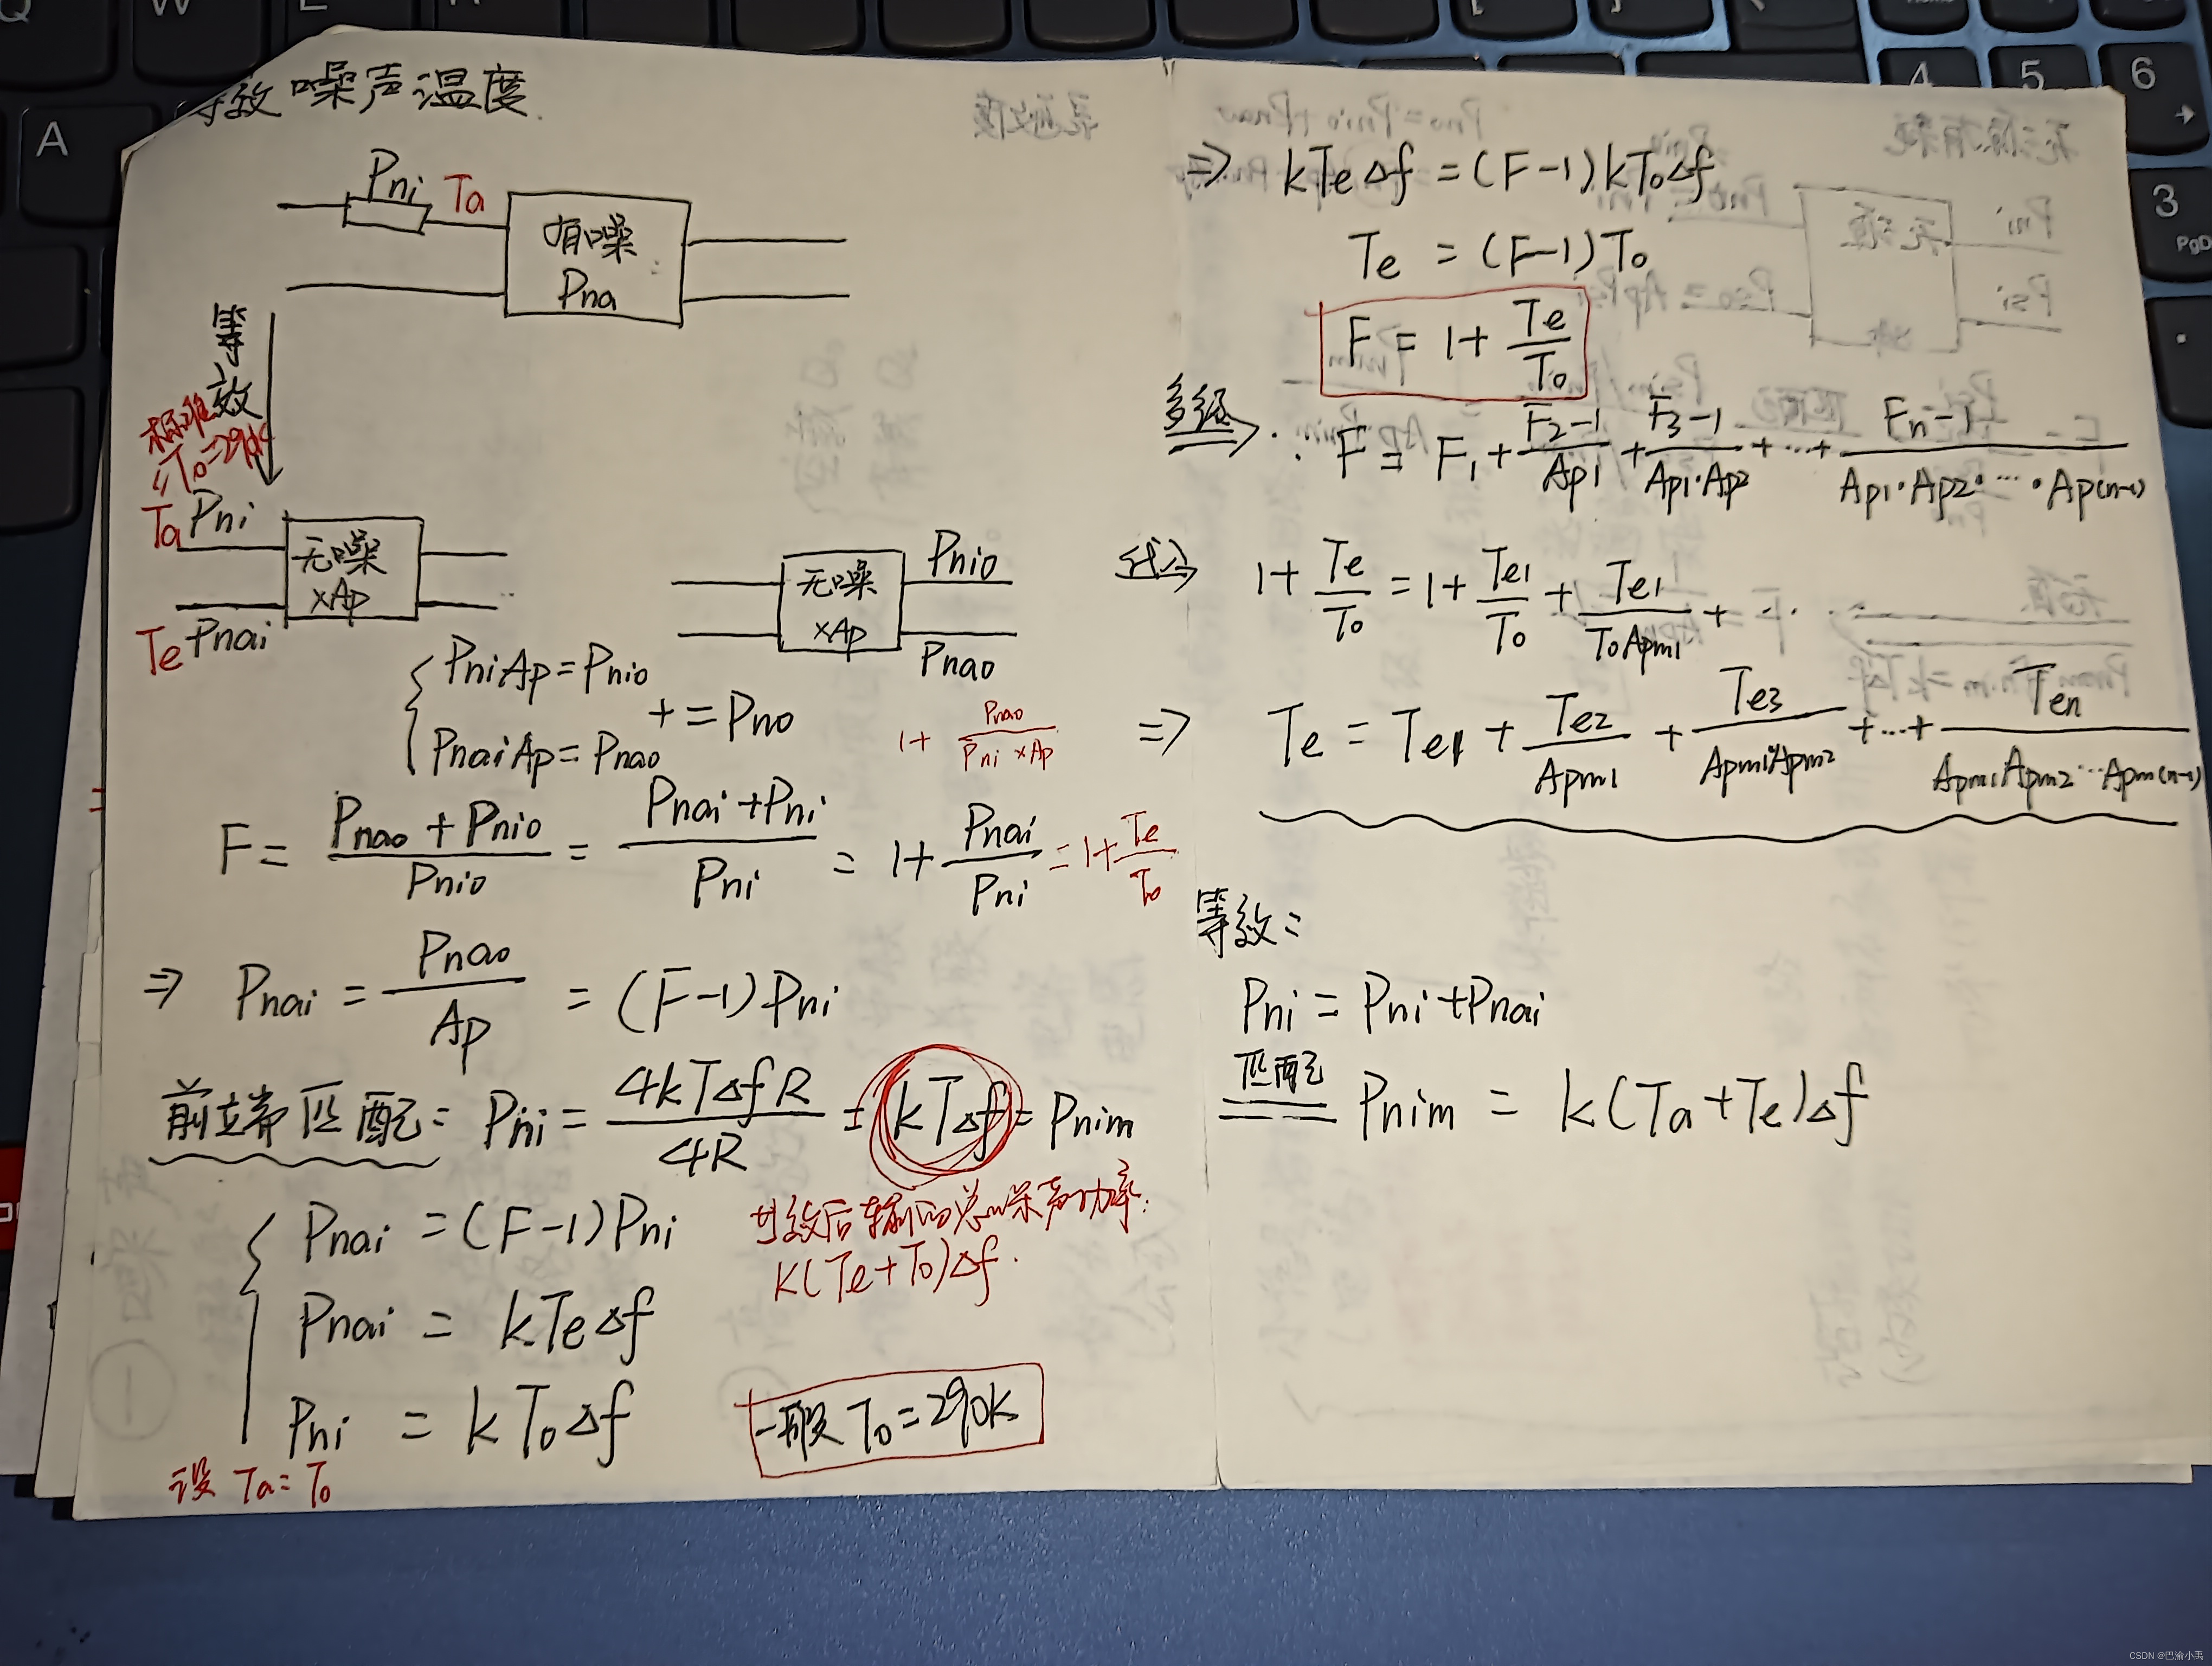 等效噪声温度
Pni Ta
有噪
Pna
等效
标准
T₀=290k
Ta Pni
无噪
×Ap
Te Pnai
无噪
×Ap
Pnio
Pnao
{ PniAp=Pnio
PnaiAp=Pnao
+ = Pno
1+ Pnao/(Pni×Ap)
F= (Pnao+Pnio)/Pnio = (Pnai+Pni)/Pni = 1+ Pnai/Pni = 1+ Te/T₀
⇒ Pnai = Pnao/Ap = (F-1)Pni
前端匹配: Pni = 4kTΔfR/4R = kTΔf = Pnim
{ Pnai = (F-1)Pni
Pnai = kTeΔf
Pni = kT₀Δf
设 Ta=T₀
等效后输入的总噪声功率:
K(Te+T₀)Δf.
一般 T₀=290k
⇒ kTeΔf = (F-1)kT₀Δf
Te = (F-1)T₀
F = 1+ Te/T₀
多级⇒: F = F₁ + (F₂-1)/Ap1 + (F₃-1)/(Ap1·Ap2) + ··· + (Fn-1)/(Ap1·Ap2· ··· ·Ap(n-1))
代入 1+ Te/T₀ = 1+ Te1/T₀ + Te1/(T₀Apm1) + ···
⇒ Te = Te1 + Te2/Apm1 + Te3/(Apm1Apm2) + ··· + Ten/(Apm1Apm2···Apm(n-1))
等效:
Pni = Pni+Pnai
匹配
Pnim = k(Ta+Te)Δf
A
4 5 6
3
PgD
CSDN @巴渝小禹